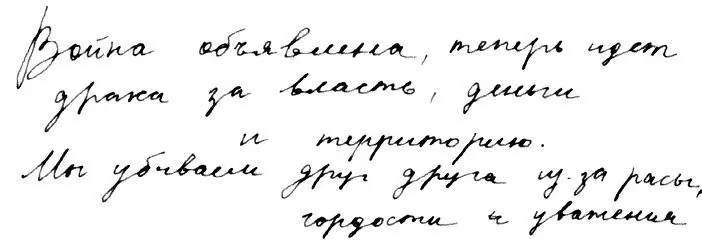 Война объявлена, теперь идет
драка за власть, деньги
и территорию.
Мы убиваем друг друга из-за расы,
гордости и уважения